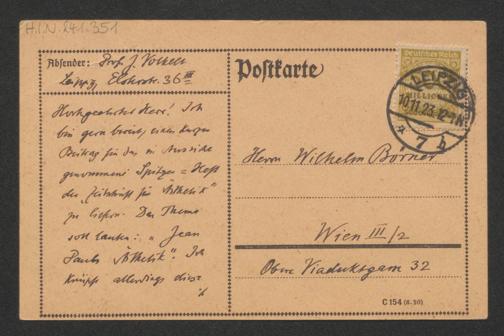 H.I.N. 241.351
Absender: Prof. J. Volkelt
Leipzig, Elsterstr. 36 III
Postkarte
Deutsches Reich
MILLIONEN
LEIPZIG
10.11.23. 12-1 N
* 7 b
Hochgeehrter Herr! Ich
bin gern bereit, einen kurzen
Beitrag für das in Aussicht
genommene Spitzer-Heft
der „Zeitschrift für Ästhetik“
zu liefern. Das Thema
soll lauten: „Jean
Pauls Ästhetik“. Ich
knüpfe allerdings diese
Herrn Wilhelm Börner
Wien III/2
Obere Viaduktgasse 32
C 154 (8. 20)